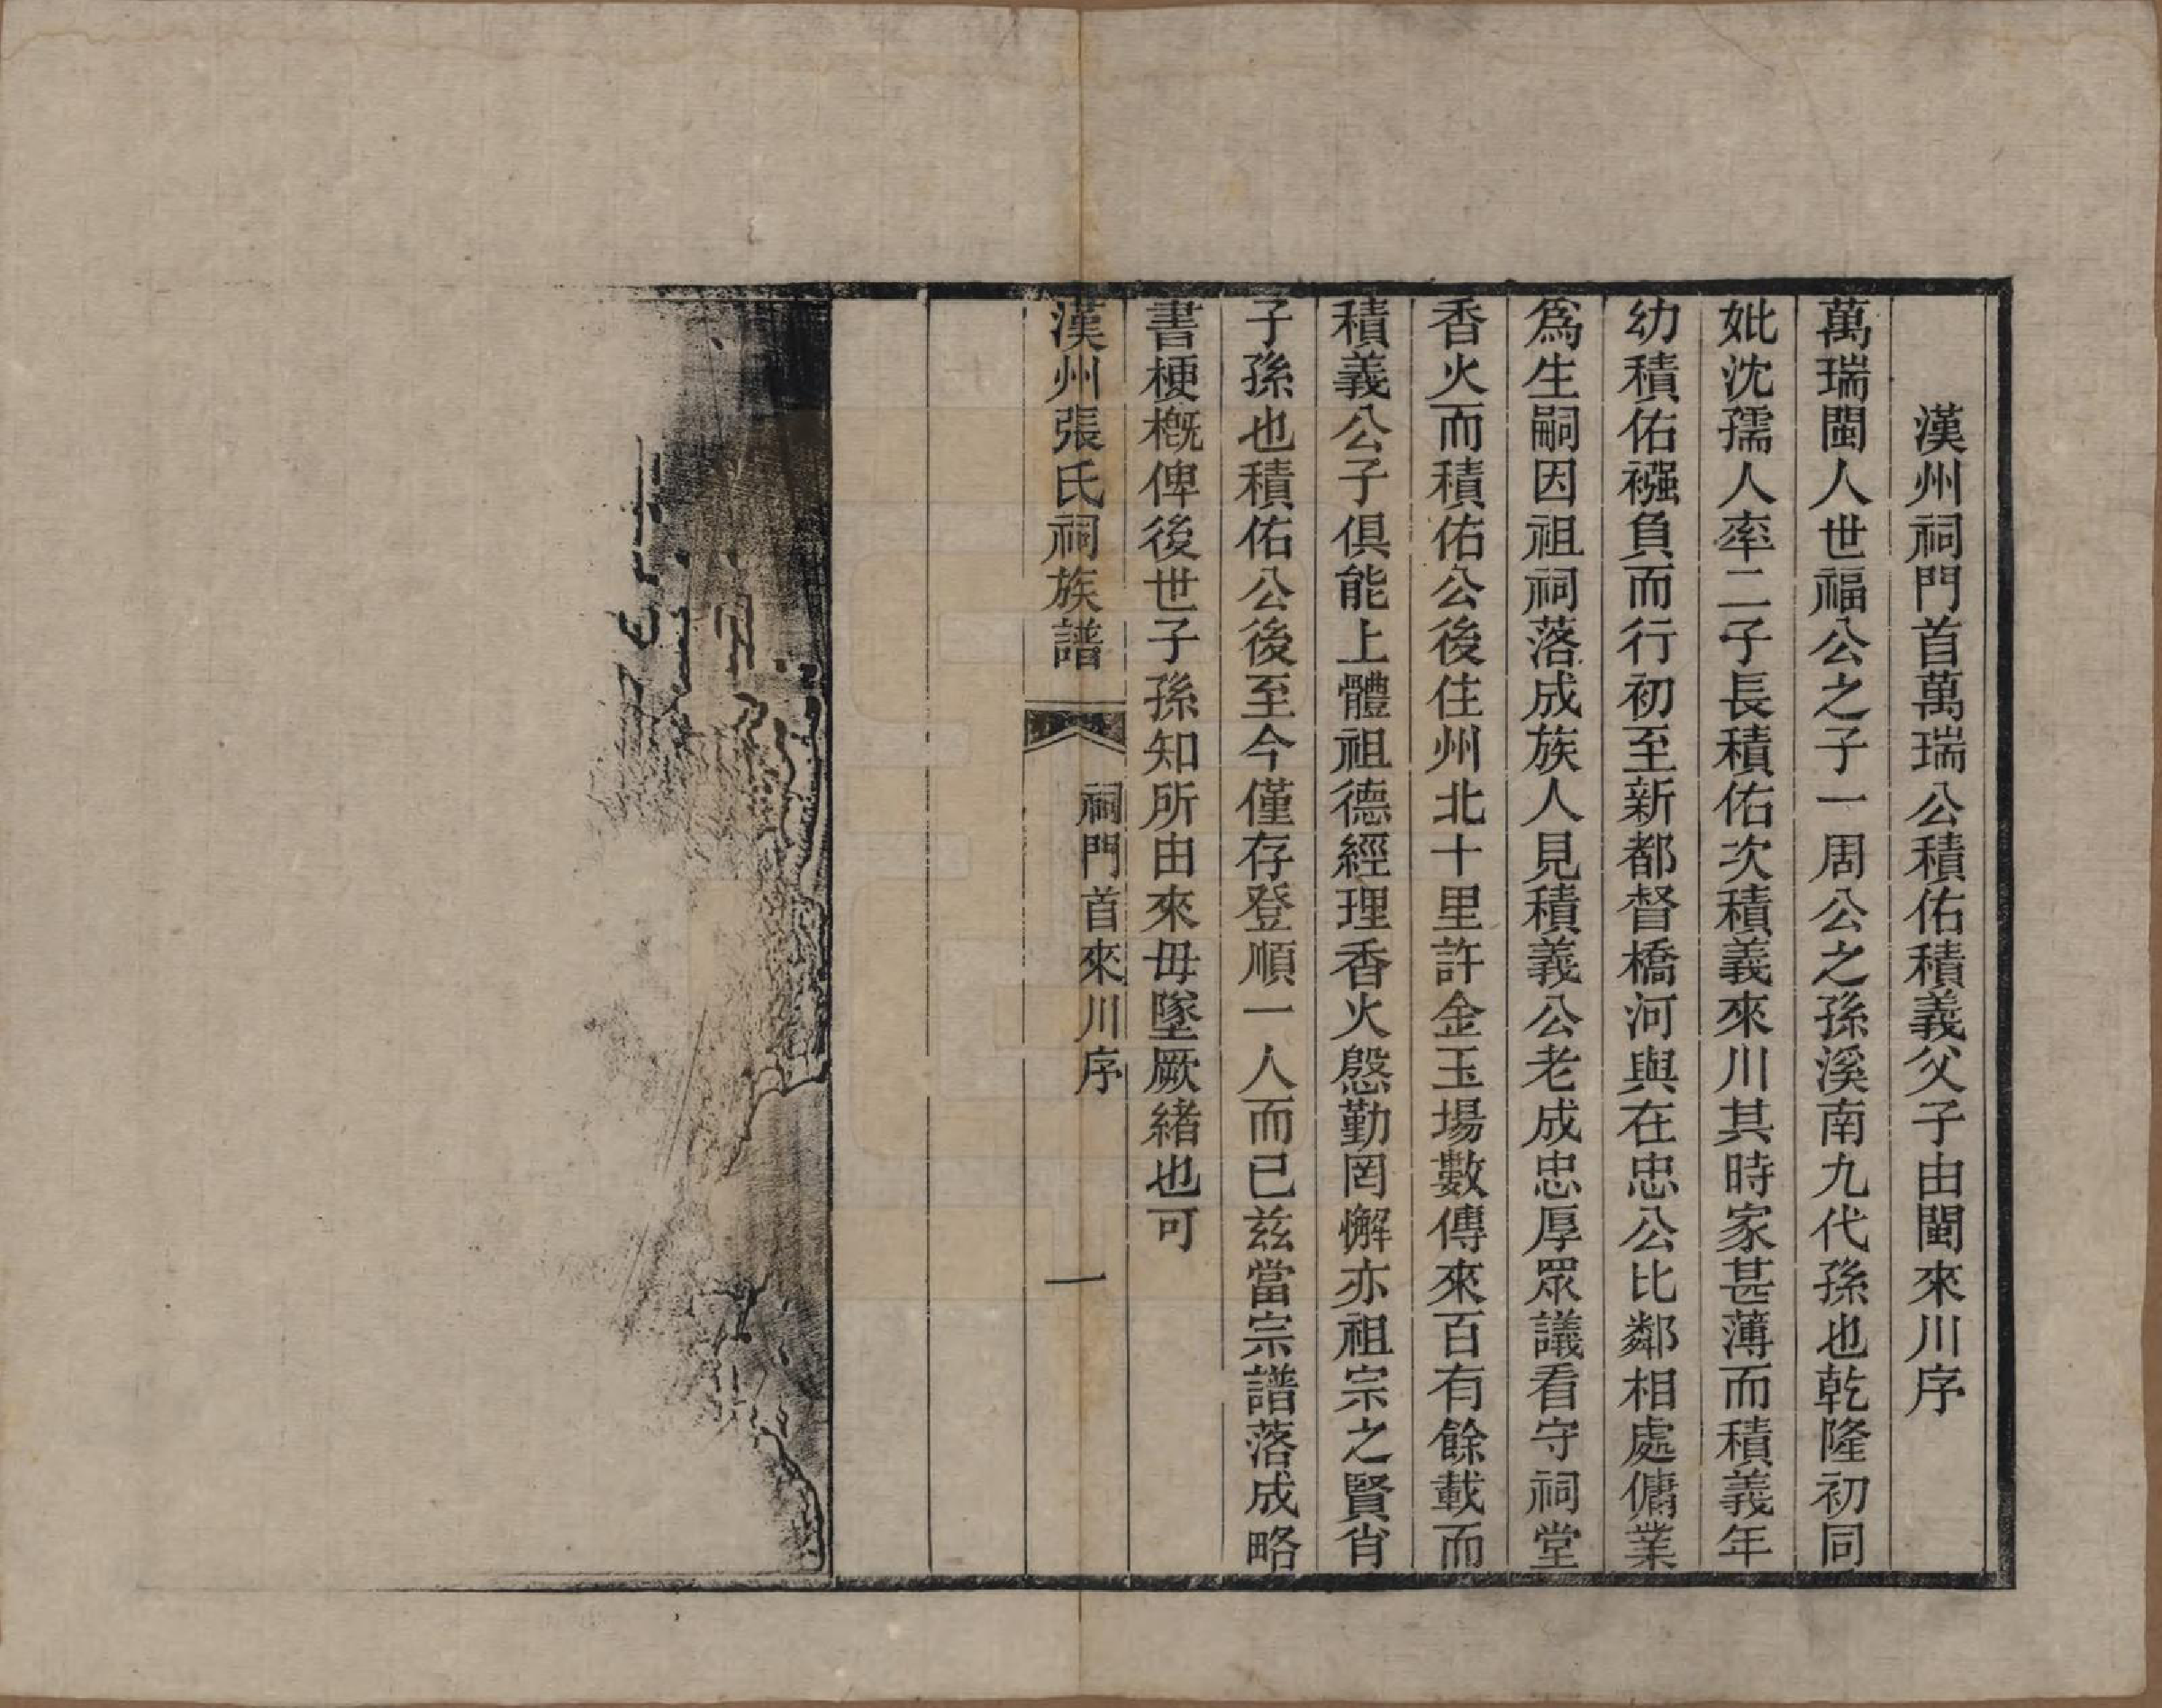 漢州祠門首萬瑞公積佑積義父子由閩來川序
萬瑞閩人世福公之子一周公之孫溪南九代孫也乾隆初同
妣沈孺人率二子長積佑次積義來川其時家甚薄而積義年
幼積佑襁負而行初至新都督橋河與在忠公比鄰相處傭業
爲生嗣因祖祠落成族人見積義公老成忠厚眾議看守祠堂
香火而積佑公後住州北十里許金玉場數傳來百有餘載而
積義公子俱能上體祖德經理香火慇勤罔懈亦祖宗之賢肖
子孫也積佑公後至今僅存登順一人而已茲當宗譜落成略
書梗概俾後世子孫知所由來毋墜厥緒也可
漢州張氏祠族譜
祠門首來川序
一